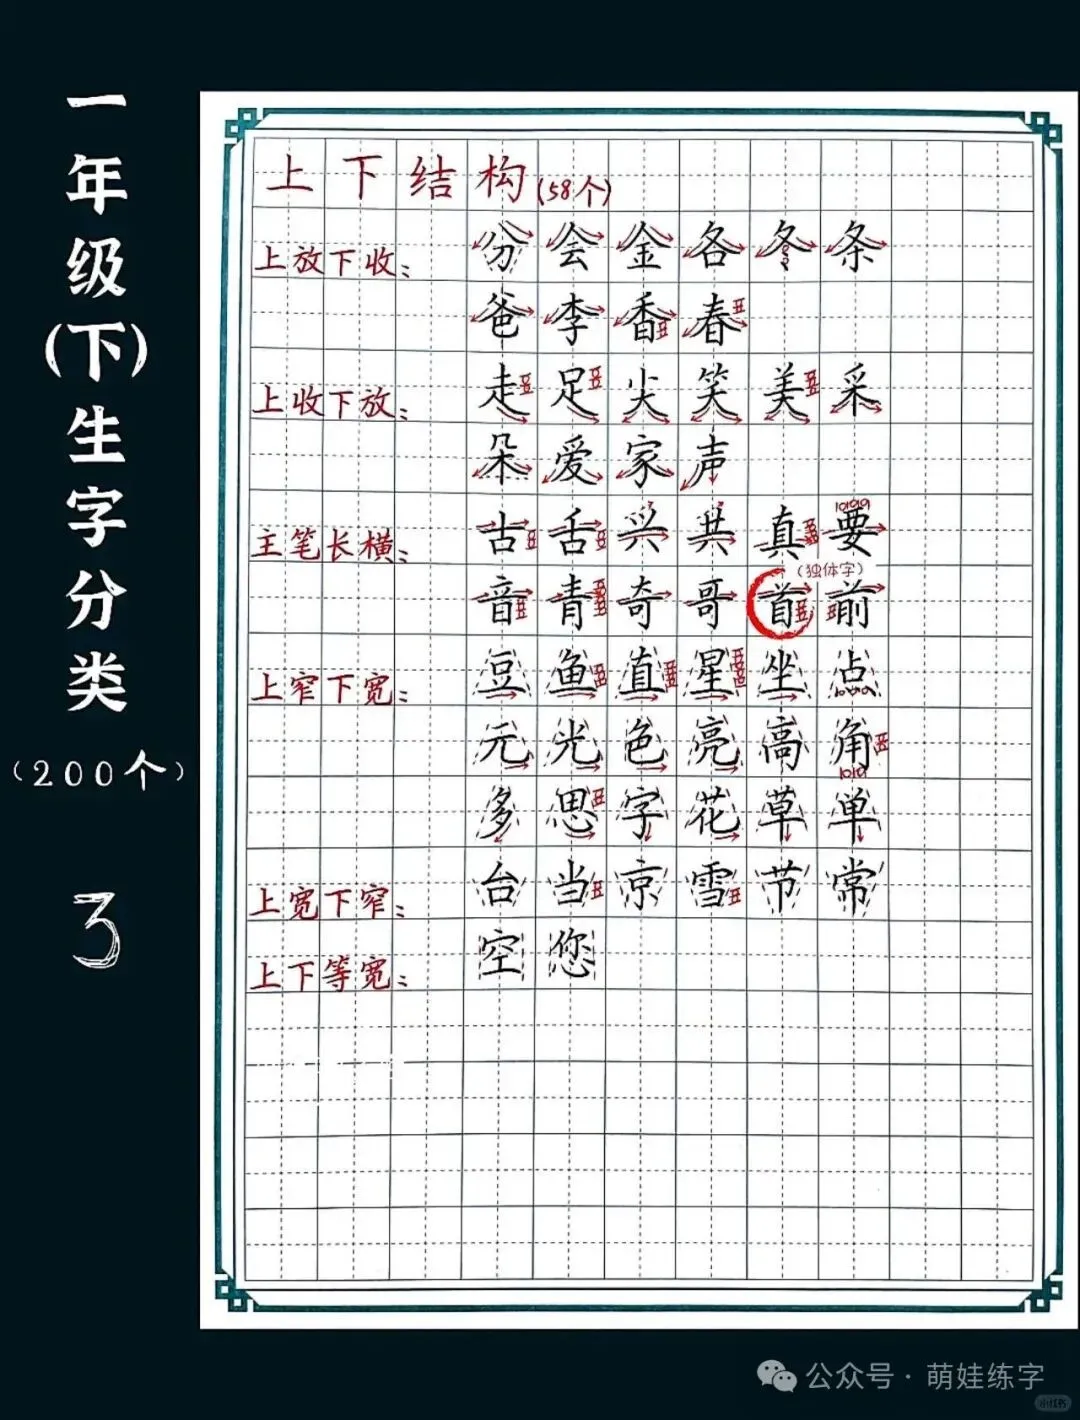 一年级(下)生字分类
(200个)
3
上下结构(58个)
上放下收: 分会金各冬条
爸李香春
上收下放: 走足尖笑美采
朵爱家声
主笔长横: 古舌兴共真要
(独体字)
音青奇哥首前
上窄下宽: 豆鱼直星坐占
元光色亮高角
多思字花草单
上宽下窄: 台当京雪节常
上下等宽: 空您
公众号·萌娃练字
小红书